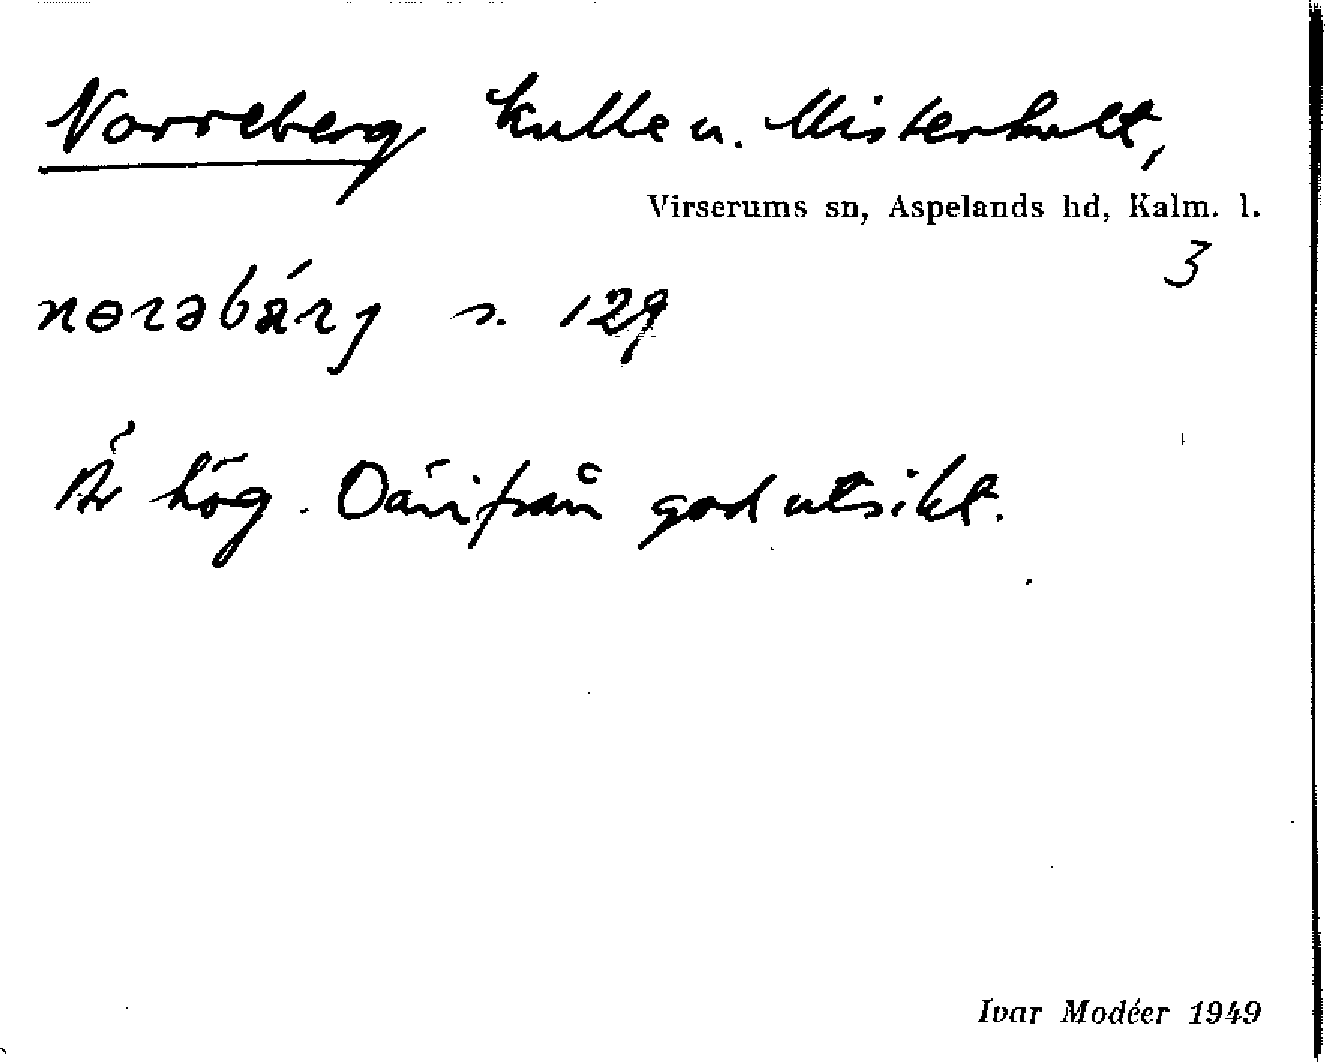 Norreberg kulle u. Misterhult,
Virserums sn, Aspelands hd, Kalm. l.
3
nɵrəbärj s. 129
Är hög. Därifrån god utsikt.
Ivar Modéer 1949